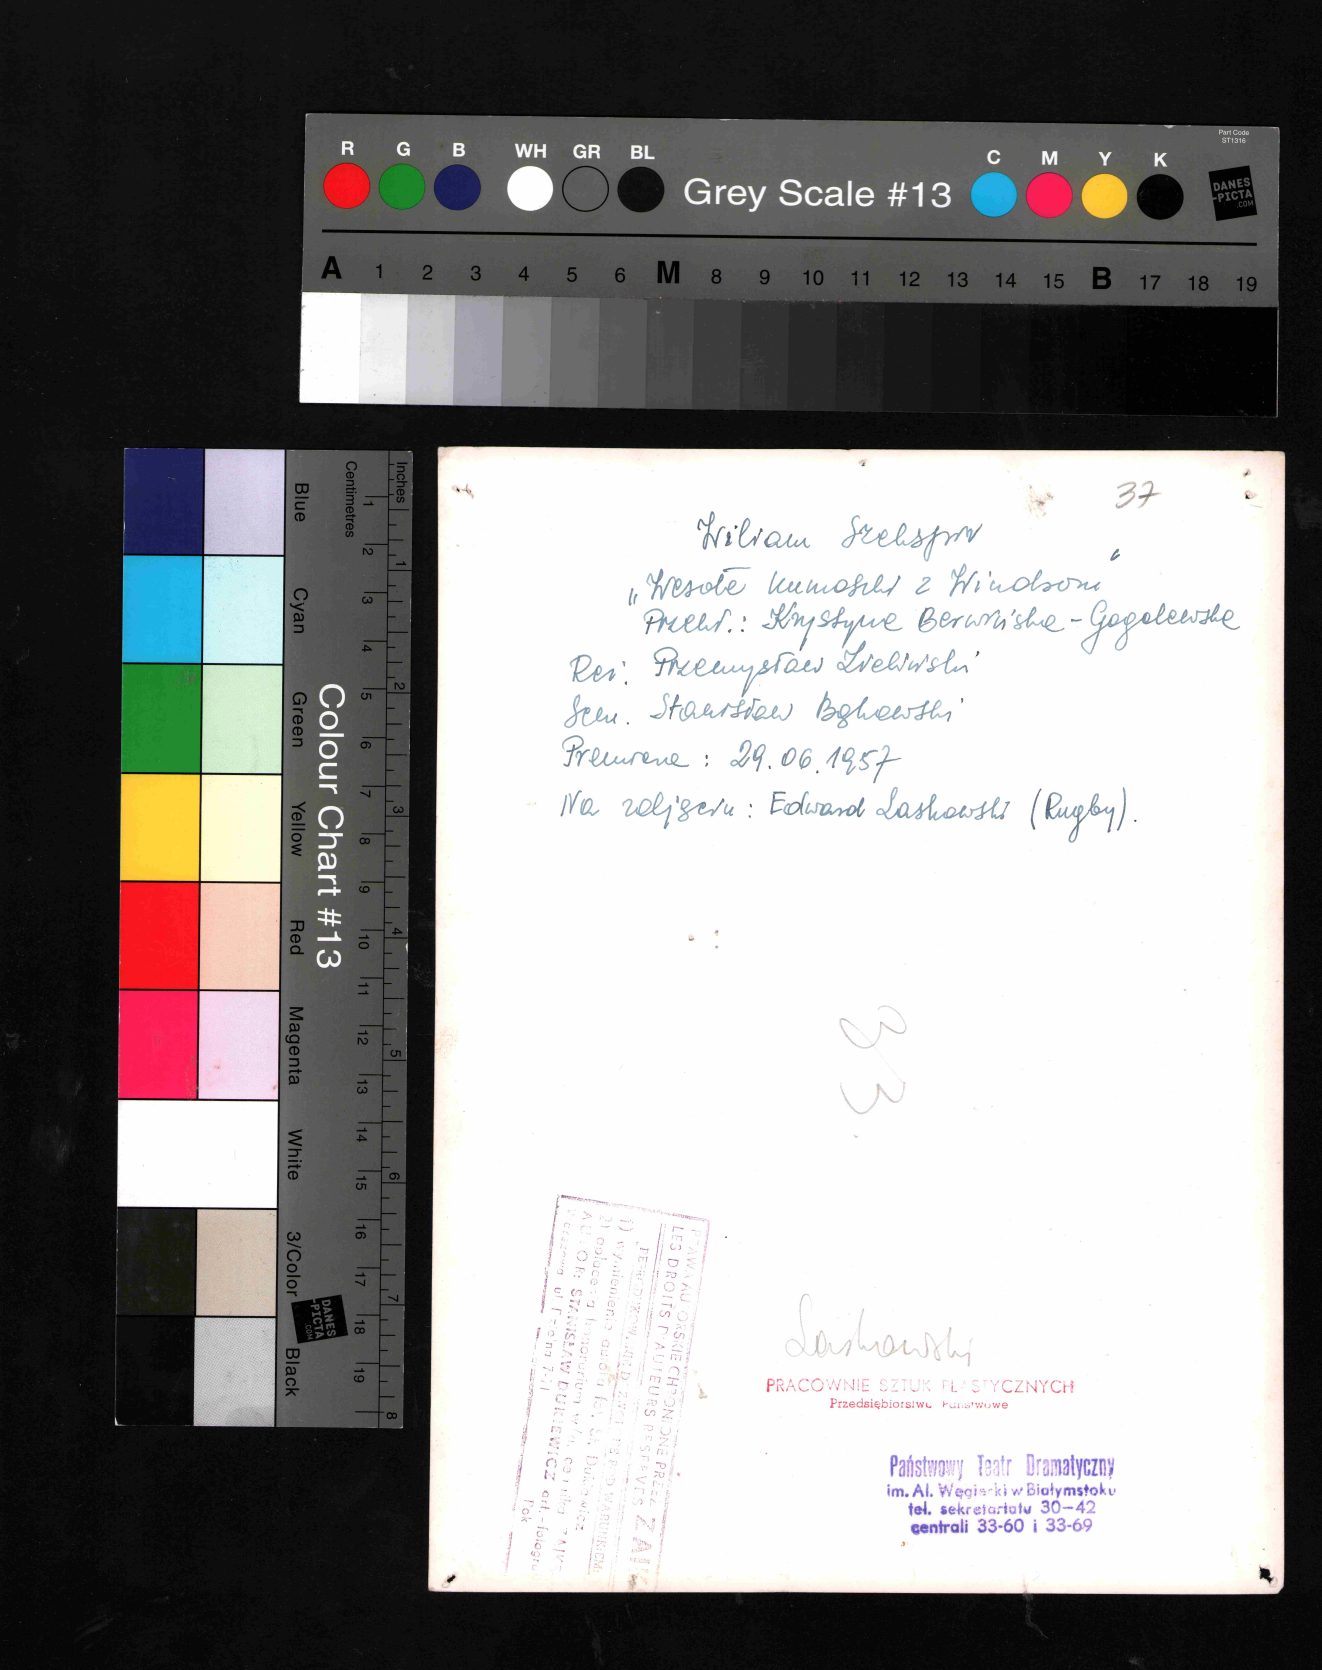 Part Code
ST1316
R G B WH GR BL Grey Scale #13 C M Y K
DANES
-PICTA
.COM
A 1 2 3 4 5 6 M 8 9 10 11 12 13 14 15 B 17 18 19
Colour Chart #13
Blue Cyan Green Yellow Red Magenta White 3/Color Black
Centimetres 1 2 3 4 5 6 7 8 9 10 11 12 13 14 15 16 17 18 19
Inches 1 2 3 4 5 6 7 8
DANES
-PICTA
.COM
37
Wiliam Szekspir
„Wesołe kumoszki z Windsoru"
Przekł.: Krystyna Berwińska-Gogolewska
Reż: Przemysław Zieliński
Scen. Stanisław Bąkowski
Premiera: 29.06.1957
Na zdjęciu: Edward Laskowski (Rugby).
Laskowski
PRACOWNIE SZTUK PLASTYCZNYCH
Przedsiębiorstwo Państwowe
Państwowy Teatr Dramatyczny
im. Al. Węgierki w Białymstoku
tel. sekretariatu 30-42
centrali 33-60 i 33-69
PRAWA AUTORSKIE CHRONIONE PRZEZ ZAI
LES DROITS D'AUTEURS RESERVES
1) wymienienia autora fot. St. Dutkiewicz
AUTOR: STANISŁAW DUTKIEWICZ art.-fotogra
Rok